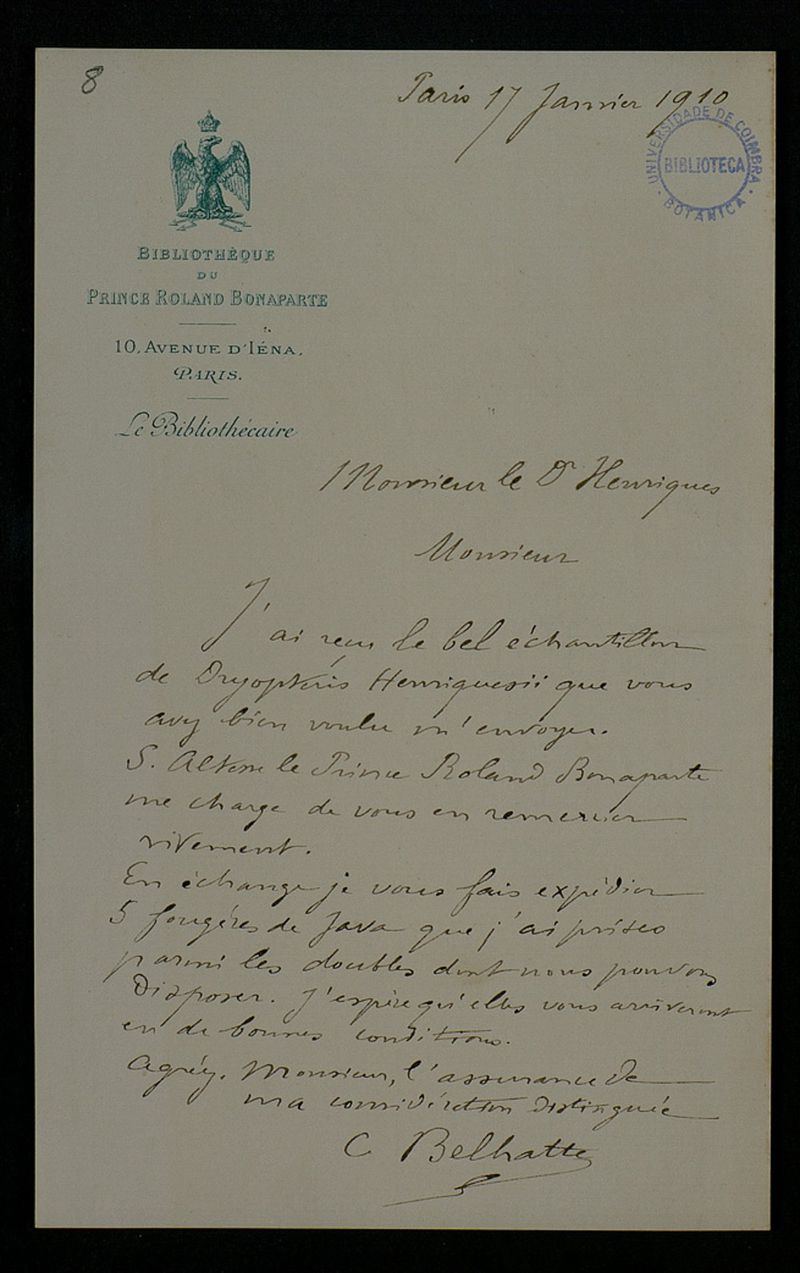 8
Paris 17 Janvier 1910
UNIVERSIDADE DE COIMBRA
BIBLIOTECA
BOTANICA
BIBLIOTHÈQUE
DU
PRINCE ROLAND BONAPARTE
10, AVENUE D'IÉNA,
PARIS.
Le Bibliothécaire
Monsieur le Dr Henriques
Monsieur
J'ai reçu le bel échantillon
de Dryopteris Henriquesii que vous
avez bien voulu m'envoyer.
S. Altesse le Prince Roland Bonaparte
me charge de vous en remercier
vivement.
En échange je vous fais expédier
5 fougères de Java que j'ai prises
parmi les doubles dont nous pouvons
disposer. J'espère qu'elles vous arriveront
en de bonnes conditions.
Agréez, Monsieur, l'assurance de
ma considération distinguée
C Belhatte